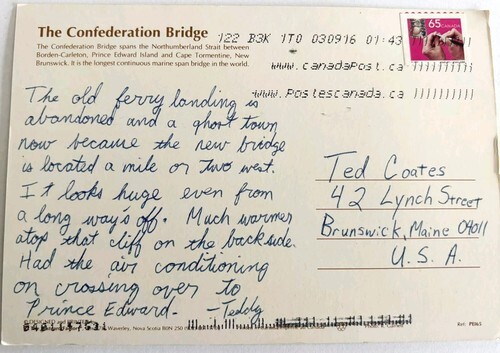 The Confederation Bridge
The Confederation Bridge spans the Northumberland Strait between
Borden-Carleton, Prince Edward Island and Cape Tormentine, New
Brunswick. It is the longest continuous marine span bridge in the world.
122 B3K 1T0 030916 01:43
www.canadaPost.ca
www.Postescanada.ca
65
CANADA
The old ferry landing is
abandoned and a ghost town
now because the new bridge
is located a mile or two west.
It looks huge even from
a long ways off. Much warmer
atop that cliff on the backside.
Had the air conditioning
on crossing over to
Prince Edward. -Teddy
Ted Coates
42 Lynch Street
Brunswick, Maine 04011
U. S. A.
Waverley, Nova Scotia B0N 2S0
Ref: PE865